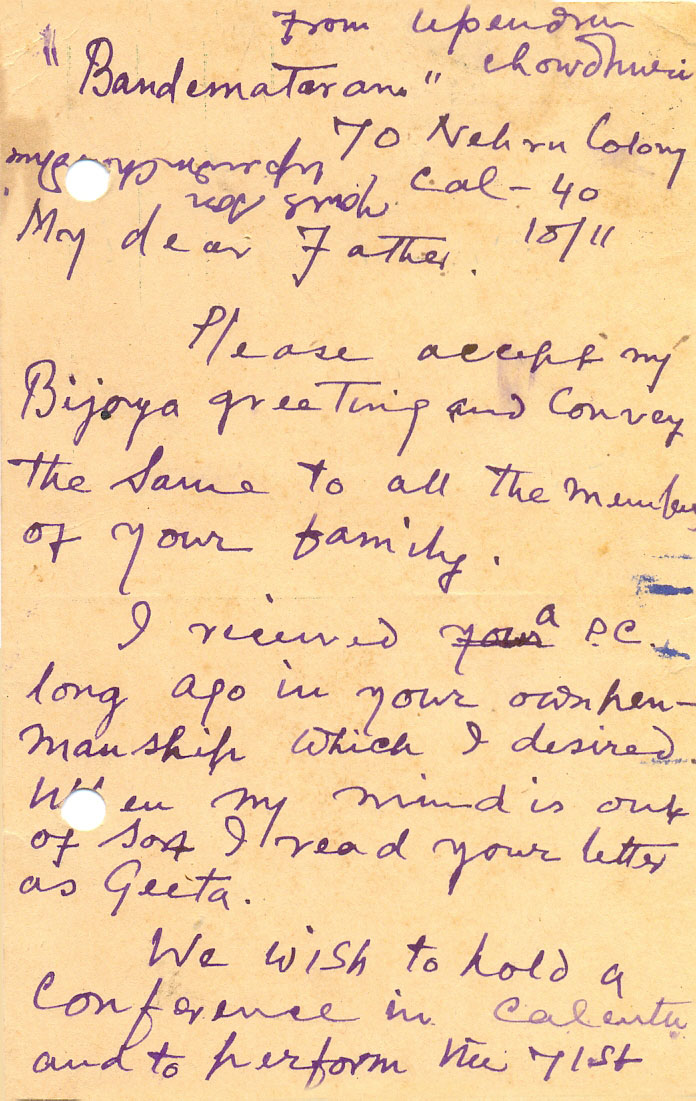 From Upendra
Chowdhuri
"Bandemataram"
70 Nehru Colony
Cal - 40
18/11
My dear Father.
Please accept my
Bijoya greeting and Convey
the same to all the member
of your family.
I recieved your a P.C.
long ago in your own pen-
manship which I desired.
When my mind is out
of sort I read your letter
as Geeta.
We wish to hold a
Conference in Calcutta
and to perform the 71st
Yours